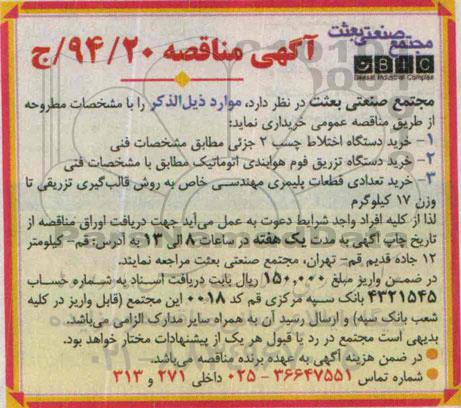 مجتمع صنعتی بعثت
BIC
Beesat Industrial Complex
آگهی مناقصه ۹۴/۲۰/ج
مجتمع صنعتی بعثت در نظر دارد، موارد ذیل‌الذکر را با مشخصات مطروحه
از طریق مناقصه عمومی خریداری نماید:
۱- خرید دستگاه اختلاط چسب ۲ جزئی مطابق مشخصات فنی
۲- خرید دستگاه تزریق فوم هوابندی اتوماتیک مطابق با مشخصات فنی
۳- خرید تعدادی قطعات پلیمری مهندسی خاص به روش قالب‌گیری تزریقی تا
وزن ۱۷ کیلوگرم
لذا از کلیه افراد واجد شرایط دعوت به عمل می‌آید جهت دریافت اوراق مناقصه از
تاریخ چاپ آگهی به مدت یک هفته در ساعات ۸ الی ۱۳ به آدرس: قم- کیلومتر
۱۲ جاده قدیم قم- تهران، مجتمع صنعتی بعثت مراجعه نمایند.
در ضمن واریز مبلغ ۱۵۰,۰۰۰ ریال بابت دریافت اسناد به شماره حساب
۴۳۲۱۵۴۵ بانک سپه مرکزی قم کد ۰۰۱۸ این مجتمع (قابل واریز در کلیه
شعب بانک سپه) و ارسال رسید آن به همراه سایر مدارک الزامی می‌باشد.
بدیهی است مجتمع در رد یا قبول هر یک از پیشنهادات مختار خواهد بود.
در ضمن هزینه آگهی به عهده برنده مناقصه می‌باشد.
شماره تماس ۳۶۶۴۷۵۵۱ - ۰۲۵ داخلی ۲۷۱ و ۳۱۳